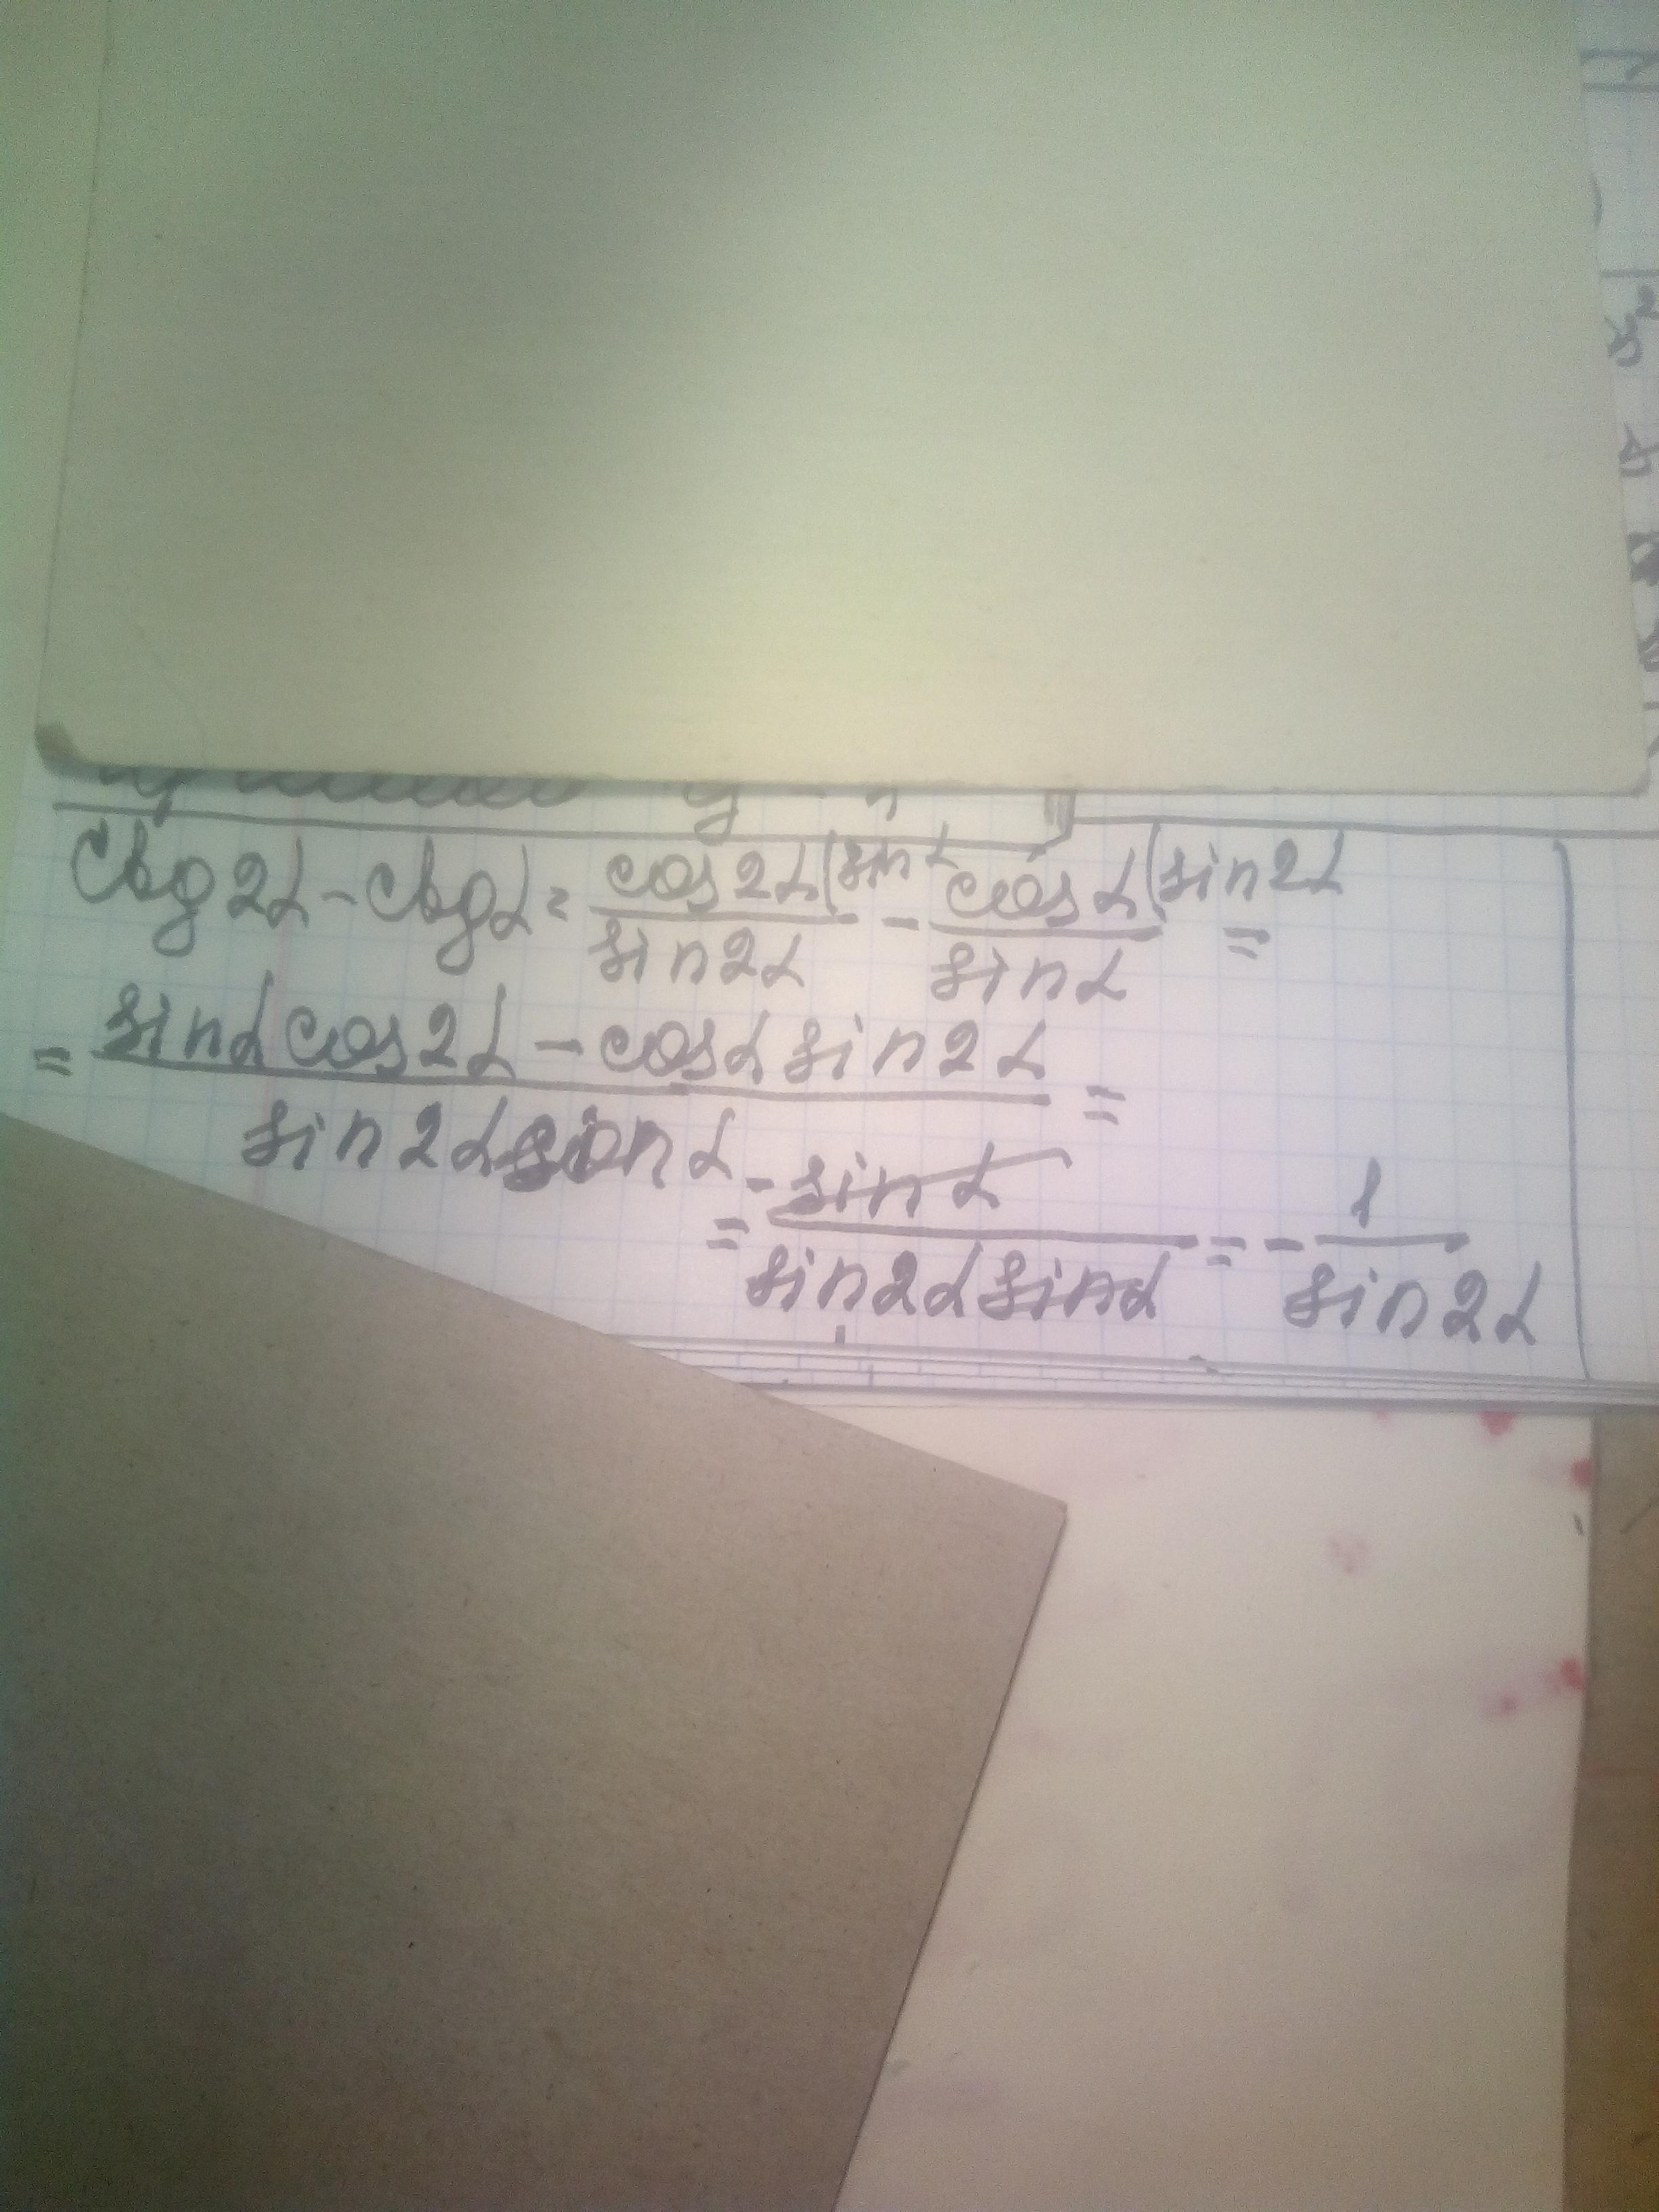 ctg2α - ctgα = cos2α(sinα / sin2α - cosα(sin2α / sinα =
= sinα cos2α - cosα sin2α / sin2α sinα =
= -sinα / sin2α sinα = - 1 / sin2α